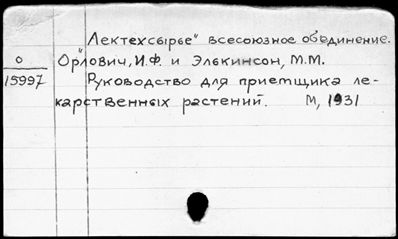 "Лектехсырье" всесоюзное объединение.
О
15997
Орлович, И.Ф. и Элькинсон, М.М.
Руководство для приемщика ле-
карственных растений. М, 1931